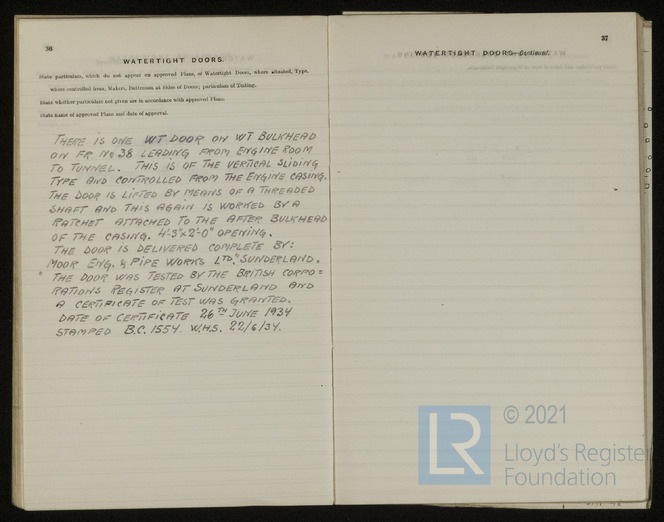 36
WATERTIGHT DOORS.
State particulars, which do not appear on approved Plans, of Watertight Doors, where situated, Type,
where controlled from, Makers, Buttresses at Sides of Doors; particulars of Testing.
State whether particulars not given are in accordance with approved Plans.
State name of approved Plans and date of approval.
THERE IS ONE WT DOOR ON WT BULKHEAD
ON FR No 38 LEADING FROM ENGINE ROOM
TO TUNNEL. THIS IS OF THE VERTICAL SLIDING
TYPE AND CONTROLLED FROM THE ENGINE CASING.
THE DOOR IS LIFTED BY MEANS OF A THREADED
SHAFT AND THIS AGAIN IS WORKED BY A
RATCHET ATTACHED TO THE AFTER BULKHEAD
OF THE CASING. 4'-3" x 2'-0" OPENING.
THE DOOR IS DELIVERED COMPLETE BY:
MOOR ENG. & PIPE WORKS LTD," SUNDERLAND.
" THE DOOR WAS TESTED BY THE BRITISH CORPO=
RATIONS REGISTER AT SUNDERLAND AND
A CERTIFICATE OF TEST WAS GRANTED.
DATE OF CERTIFICATE 26TH JUNE 1934
STAMPED B.C. 1554. W.H.S. 22/6/34.
37
WATERTIGHT DOORS—Continued.
LR
© 2021
Lloyd's Register
Foundation